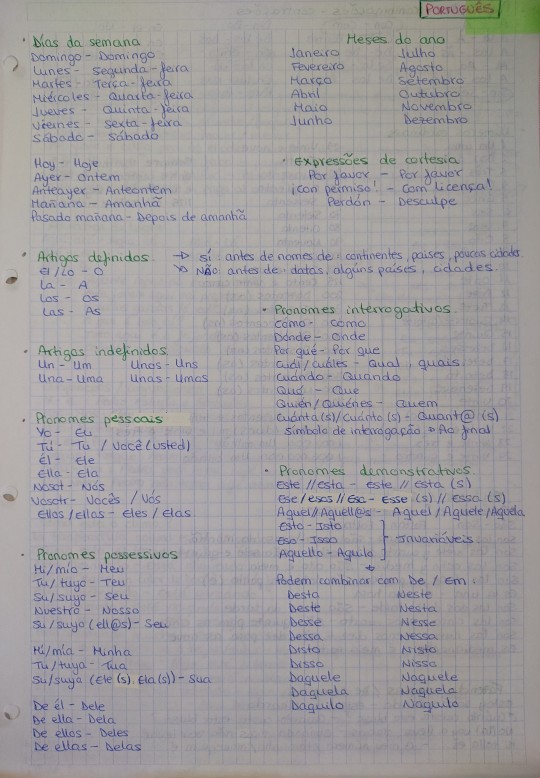 PORTUGUÊS
Días da semana
Domingo - Domingo
Lunes - Segunda-feira
Martes - Terça-feira
Miércoles - Quarta-feira
Jueves - Quinta-feira
Viernes - Sexta-feira
Sábado - Sábado
Hoy - Hoje
Ayer - Ontem
Anteayer - Anteontem
Mañana - Amanhã
Pasado mañana - Depois de amanhã
Meses do ano
Janeiro Julho
Fevereiro Agosto
Março Setembro
Abril Outubro
Maio Novembro
Junho Dezembro
Expressões de cortesia
Por favor - Por favor
¡Con permiso! - Com licença!
Perdón - Desculpe
Artigos definidos → Sí antes de nomes de: continentes, países, poucas cidades.
El/Lo - O ↘ NÃO antes de: datas, algúns países, cidades.
La - A
Los - Os
Las - As
Artigos indefinidos
Un - Um Unos - Uns
Una - Uma Unas - Umas
Pronomes pessoais
Yo - Eu
Tú - Tu / Você (usted)
Él - Ele
Ella - Ela
Nosot - Nós
Vosotr - Vocês / Vós
Ellos/ellas - Eles/Elas
Pronomes possessivos
Mi/mío - Meu
Tu/tuyo - Teu
Su/suyo - Seu
Nuestro - Nosso
Su/suyo (ell@s) - Seu
Mi/mía - Minha
Tu/tuya - Tua
Su/suya (Ele (s), Ela(s)) - Sua
De él - Dele
De ella - Dela
De ellos - Deles
De ellas - Delas
Pronomes interrogativos
Cómo - Como
Dónde - Onde
Por qué - Por que
Cuál/cuáles - Qual, quais
Cuándo - Quando
Qué - Que
Quién/Quiénes - Quem
Cuánta(s)/cuánto(s) - Quant@ (s)
Símbolo de interrogação → Ao final
Pronomes demonstrativos
Este // Esta - este // esta (s)
Ese/esos // Esa - Esse (s) // Essa (s)
Aquel // Aquell@s - Aquel / Aquele / Aquela
Esto - Isto
Eso - Isso Invariáveis
Aquello - Aquilo
Podem combinar com De / Em:
Desta Neste
Deste Nesta
Desse Nesse
Dessa Nessa
Disto Nisto
Disso Nisso
Daquele Naquele
Daquela Naquela
Daquilo Naquilo